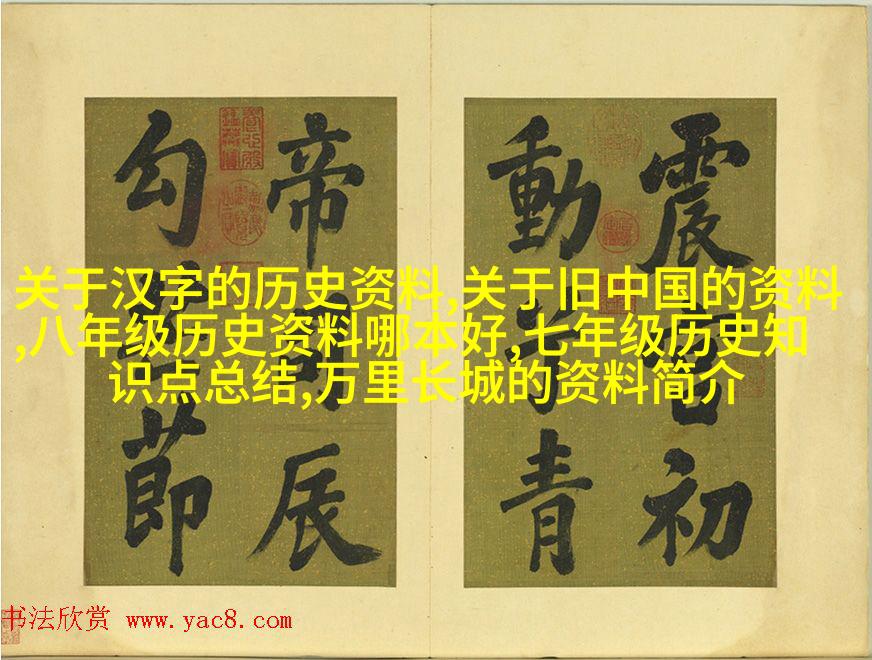 震初
動青
帝辰
勾節
关于汉字的历史资料,关于旧中国的资料
,八年级历史资料哪本好,七年级历史知
识点总结,万里长城的资料简介
书法欣赏 www.yac8.com